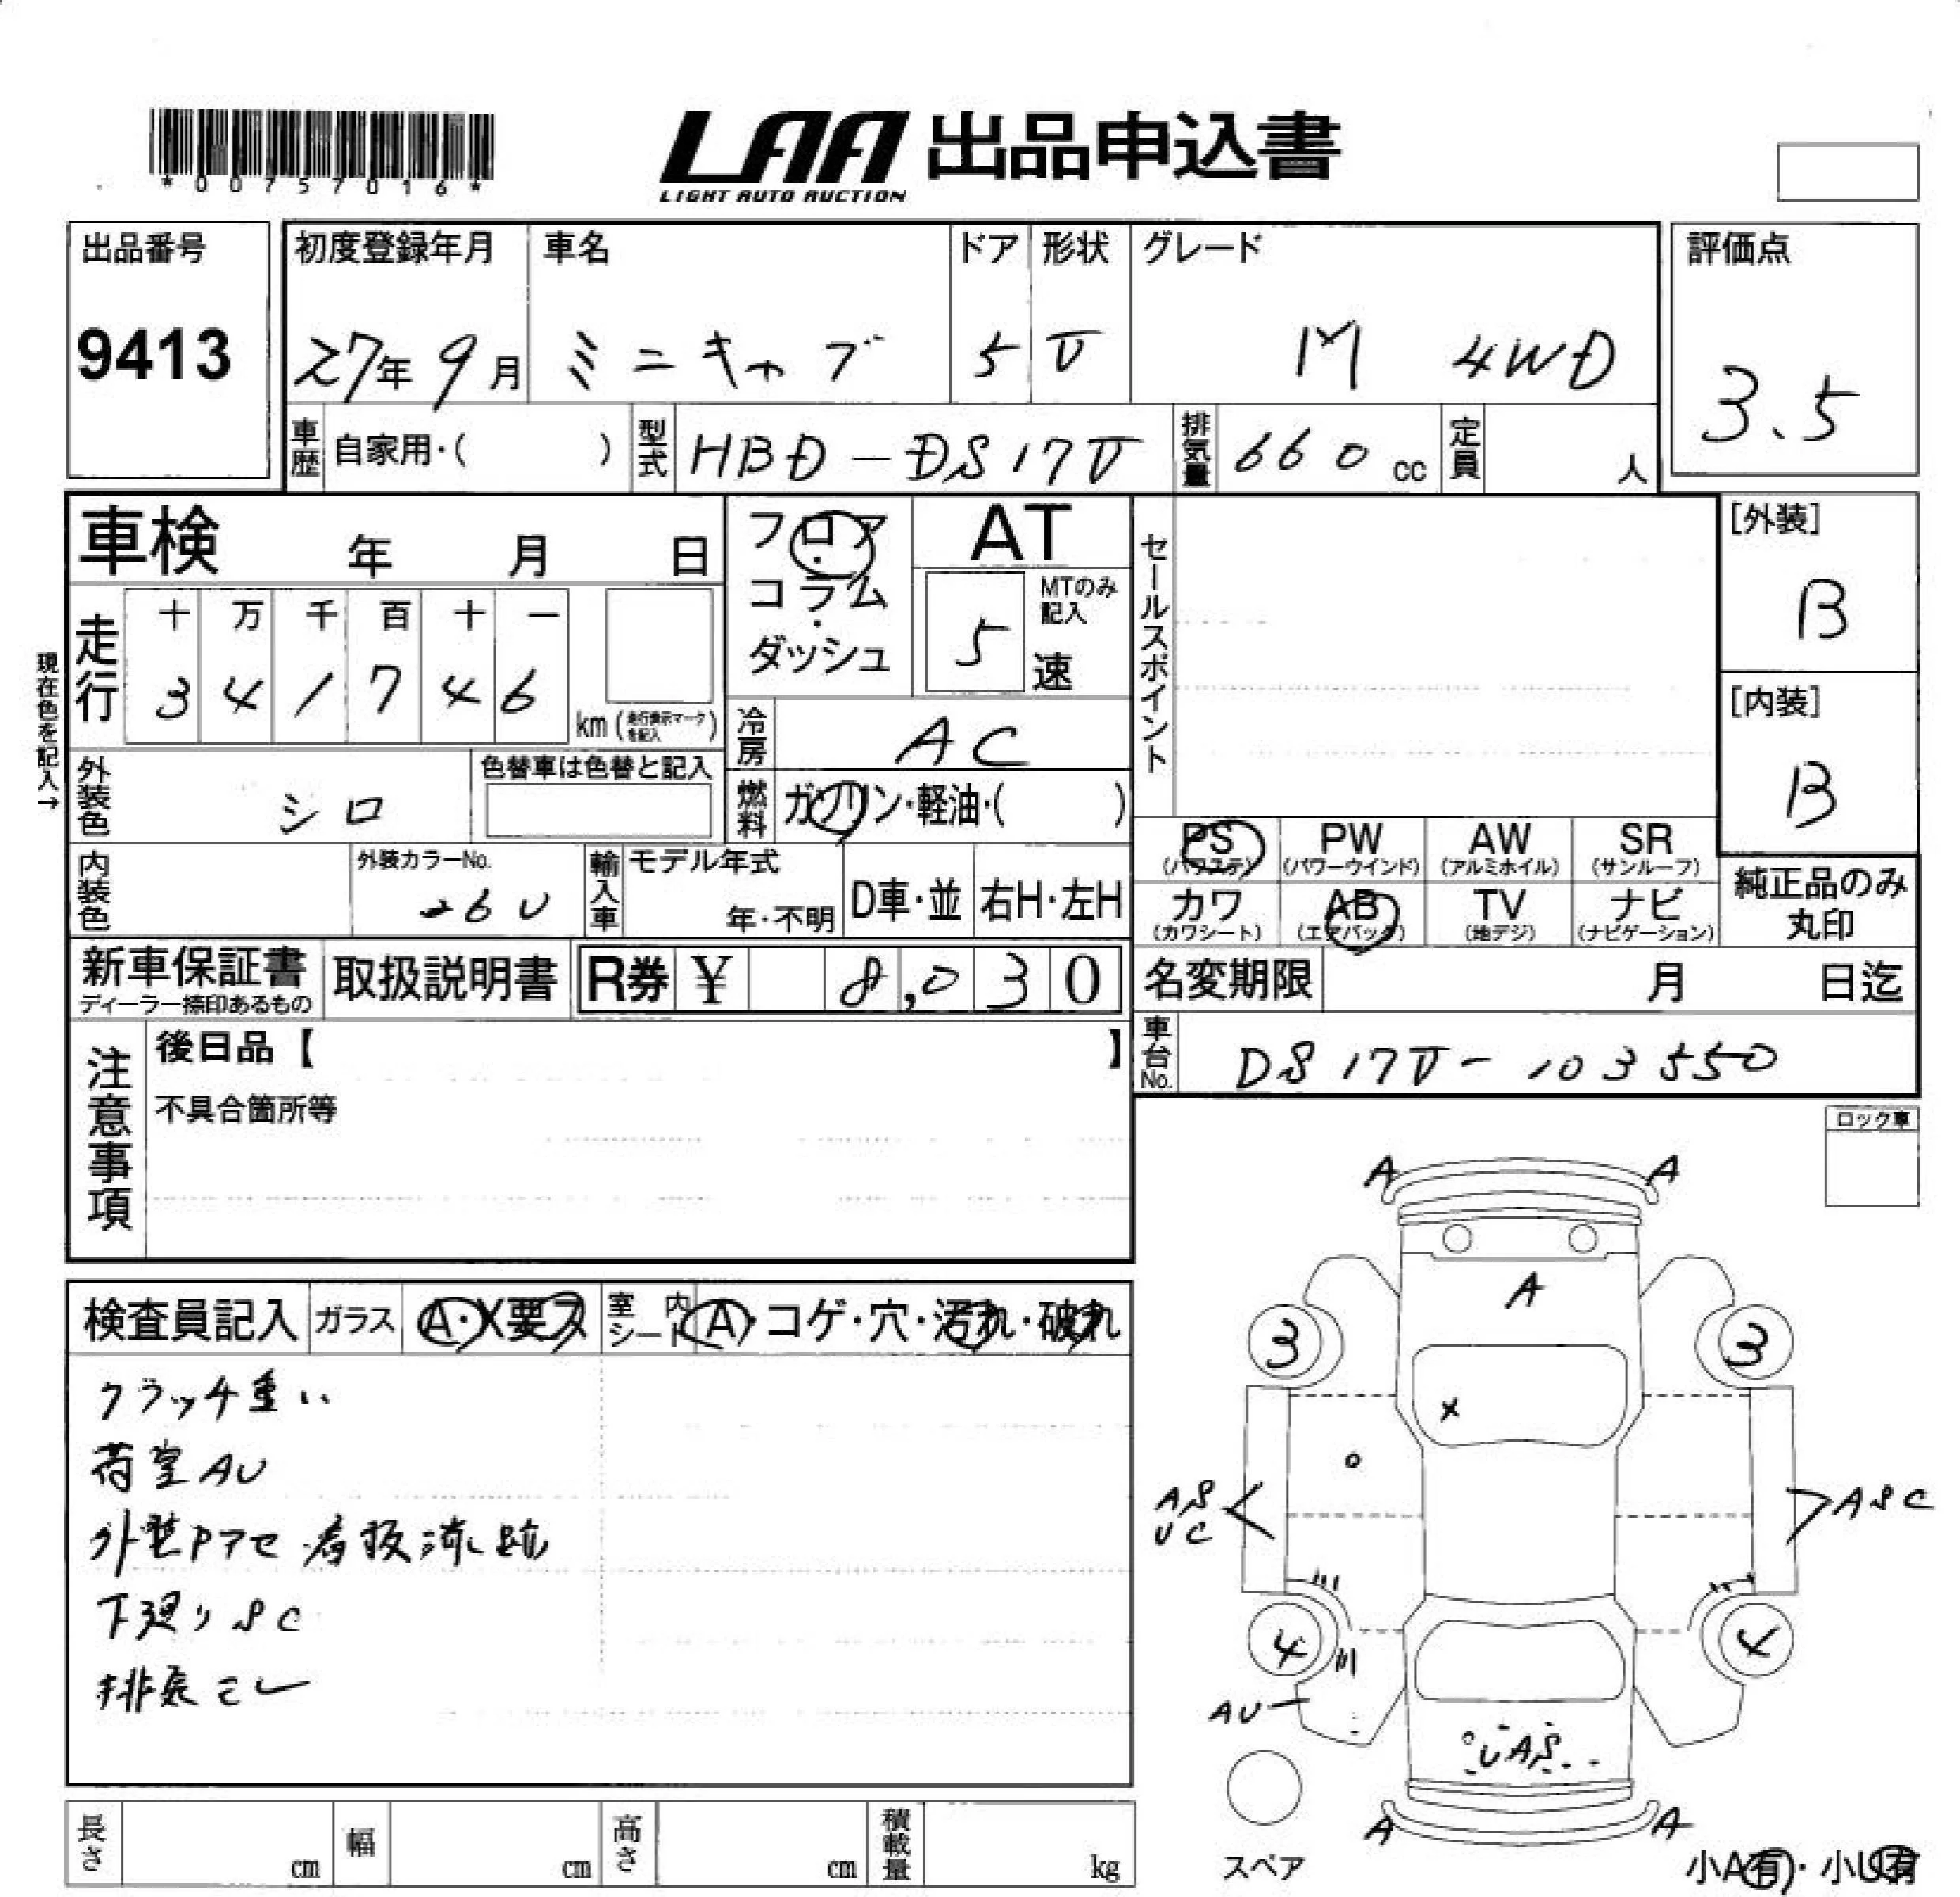 *00757016*
LAA 出品申込書
LIGHT AUTO AUCTION
出品番号
9413
初度登録年月
27年 9月
車名
ミニキャブ
ドア
5
形状
V
グレード
M 4WD
評価点
3.5
車歴
自家用・( )
型式
HBD-DS17V
排気量
660 cc
定員
人
車検 年 月 日
走行
十 万 千 百 十 一
3 4 1 7 4 6
km(走行表示マークを記入)
現在色を記入→
フロア・コラム・ダッシュ
AT
5 速
MTのみ記入
冷房
AC
燃料
ガソリン・軽油・( )
外装色
シロ
色替車は色替と記入
内装色
外装カラーNo.
26U
輸入車
モデル年式
年・不明
D車・並
右H・左H
セールスポイント
[外装]
B
[内装]
B
PS
(パワステ)
PW
(パワーウインド)
AW
(アルミホイル)
SR
(サンルーフ)
カワ
(カワシート)
AB
(エアバック)
TV
(地デジ)
ナビ
(ナビゲーション)
純正品のみ
丸印
新車保証書
ディーラー捺印あるもの
取扱説明書
R券 ¥ 8,030
名変期限 月 日迄
車台No.
DS17V-103550
注意事項
後日品【 】
不具合箇所等
ロック車
検査員記入
ガラス
A・X要ス
室内シート
A・コゲ・穴・汚れ・破れ
クラッチ重い
荷室AU
外装Pアセ 看板流し跡
下廻りSC
排気モレ
A
A
A
3
3
X
AS
UC
ASC
4
4
AU
UAS
A
A
スペア
小A有・小U有
長さ cm
幅 cm
高さ cm
積載量 kg